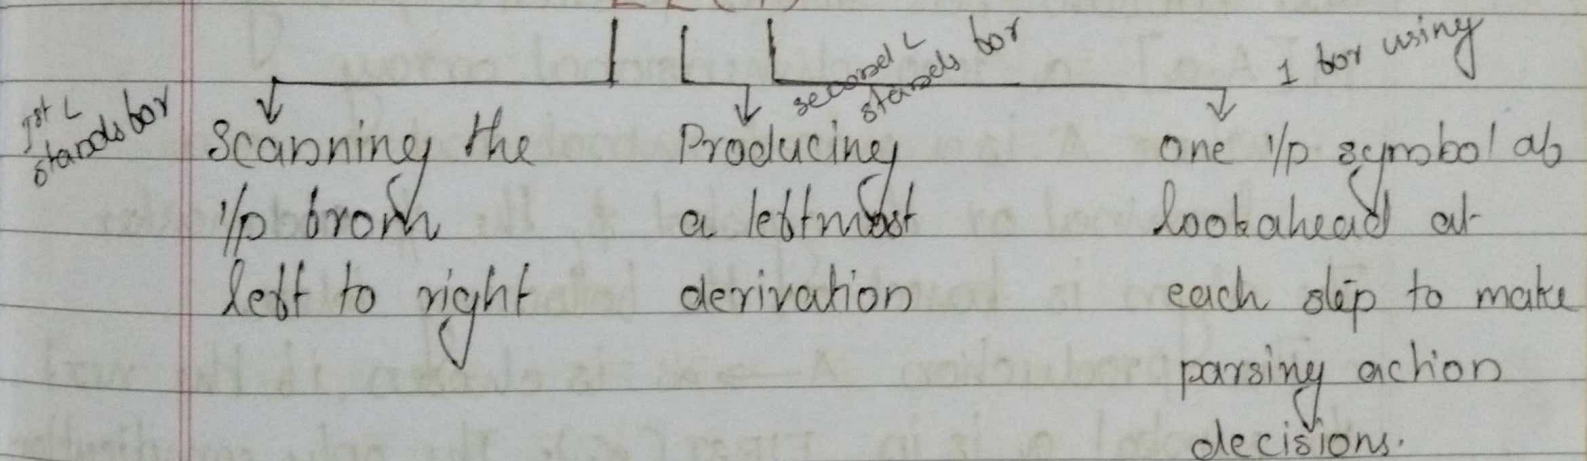 LL(1)
1st L stands for
Scanning the
i/p from
left to right
second L stands for
Producing
a leftmost
derivation
1 for using
one i/p symbol of
lookahead at
each step to make
parsing action
decisions.